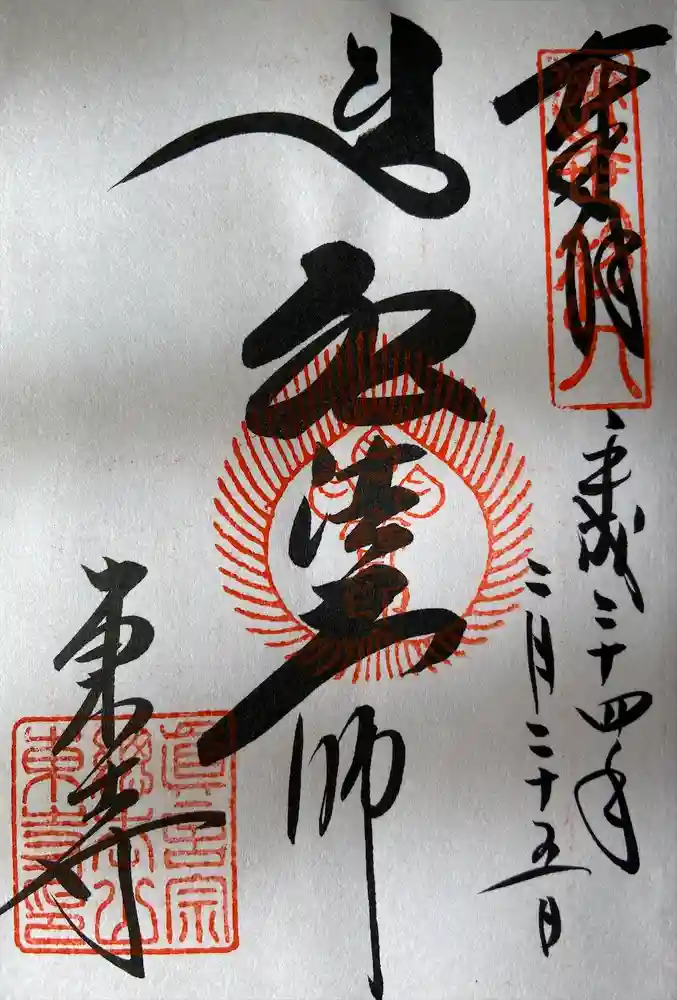 平成二十四年
二月二十五日
弘法大師
東寺
眞言宗
總本山
東寺印